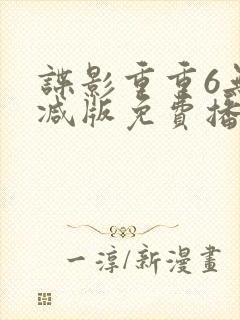 諜影重重6無
減版免費播
一淳/新漫畫